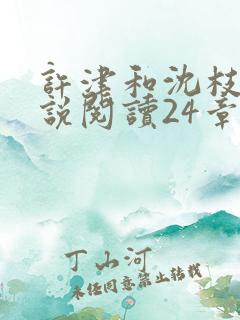 許津和沈枝
說閱讀24章
丁山河
未經同意禁止轉載